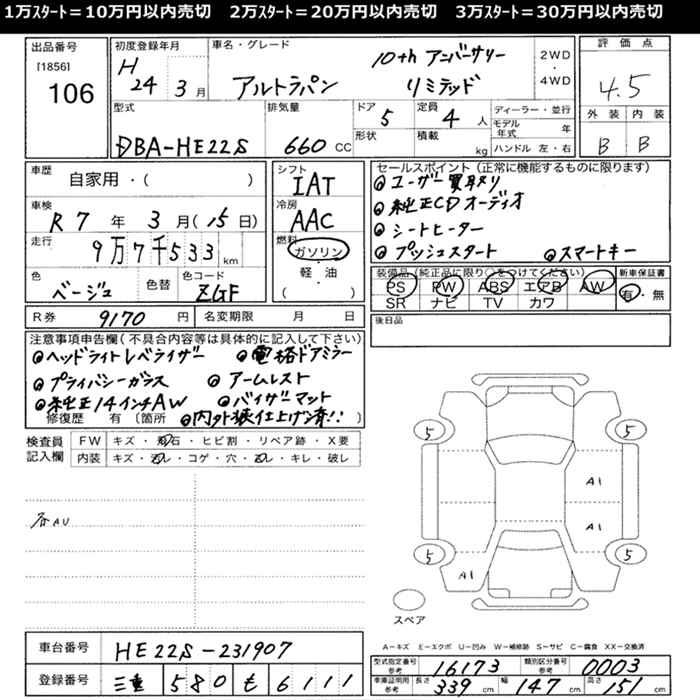 1万ｽﾀｰﾄ＝10万円以内売切　2万ｽﾀｰﾄ＝20万円以内売切　3万ｽﾀｰﾄ＝30万円以内売切
出品番号 [1856] 106
初度登録年月 H 24年 3月
車名・グレード アルトラパン 10th アニバーサリー リミテッド
2WD・4WD
評価点 4.5
外装 B 内装 B
型式 DBA-HE22S
排気量 660 CC
ドア 5 形状
定員 4人 積載 kg
ディーラー・並行
モデル年式 年
ハンドル 左・右
車歴 自家用・( )
車検 R7年 3月(15日)
走行 9万7千533km
色 ベージュ 色替 色コード ZGF
シフト IAT
冷房 AAC
燃料 ガソリン・軽・油 ( )
セールスポイント (正常に機能するものに限ります)
◎ユーザー買取り
◎純正CDオーディオ
◎シートヒーター
◎プッシュスタート ◎スマートキー
装備品(純正品に限り○をつけてください) 新車保証書
PS PW ABS エアB AW 有・無
SR ナビ TV カワ
R券 9170円 名変期限 月 日
後日品
注意事項申告欄(不具合内容等は具体的に記入して下さい)
◎ヘッドライトレベライザー ◎電格ドアミラー
◎プライバシーガラス ◎アームレスト
◎純正14インチAW ◎バイザーマット
修復歴 有 (箇所 ◎内外装仕上げ済!!)
検査員記入欄 FW キズ・飛石・ヒビ割・リペア跡・X要
内装 キズ・汚レ・コゲ・穴・凹レ・キレ・破レ
5 5
A1
A1
5 5
A1
スペア
A－キズ E－エクボ U－凹み W－補修跡 S－サビ C－腐食 XX－交換済
車台番号 HE22S-231907
登録番号 三重 580 も 6111
型式指定番号 参考 16173 類別区分番号 参考 0003
車庫証明用 参考 長さ 339cm 幅 147cm 高さ 151cm